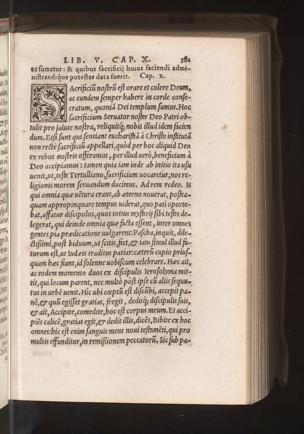 LIB. V. CAP. X. 381
ex sumatur: & quibus sacrificij huius faciendi admi-
nistrandique potestas data fuerit. Cap. x.
SAcrificiū nostrū est orare et colere Deum,
ac eundem semper habere in corde conse-
cratum, quoniā Dei templum sumus. Hoc
sacrificium Seruator noster Deo Patri ob-
tulit pro salute nostra, reliquitq́; nobis illud idem facien
dum. Etsi sunt qui sentiant eucharistiā à Christo institutā
non rectè sacrificiū appellari, quòd per hoc aliquid Deo
ex rebus nostris offeramus, per illud verò, beneficium à
Deo accipiamus: tamen quia iam inde ab initio ita usu
uenit, ut, teste Tertulliano, sacrificium uocaretur, nos re-
ligionis morem seruandum ducimus. Ad rem redeo. Is
qui omnia quæ uētura erant, ab æterno nouerat, postea-
quam appropinquare tempus uiderat, quo pati oporte-
bat, affatur discipulos, quos totius mysterij sibi testes de-
legerat, qui deinde omnia quæ facta essent, inter omnes
gentes pia prædicatione uulgarent: Pascha, inquit, dile-
ctissimi, post biduum, ut scitis, fiet, & iam simul illud fu-
turum est, ut uobis traditus patiar: cæterū cupio prius-
quam hæc fiant, id solenne uobiscum celebrare. Hæc ait,
ac eodem momento duos ex discipulis Ierosolyma mit-
tit, qui locum parent, nec multò pòst ipse cū alijs sequu-
tus in urbē uenit. Hic ubi cœptū est discūbi, accepit pa-
nē, & quū egisset gratias, fregit, deditq́; discipulis suis,
& ait, Accipite, comedite, hoc est corpus meum. Et acci-
piēs calicē, gratias egit, & dedit illis, dicēs, Bibite ex hoc
omnes: hic est enim sanguis meus noui testamēti, qui pro
multis effunditur, in remissionem peccatorū. Sic sub pa-